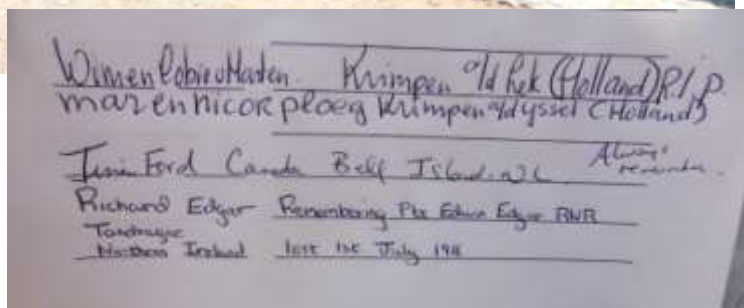 Krimpen a/d Lek (Holland) R.I.P.
maren nicor ploeg Krimpen a/d yssel (Holland)
Ford Canada Bell Island. NL Always remember
Richard Edgar Remembering Pte Edwin Edgar RNR
Tandragee
Northern Ireland lost 1st July 1916